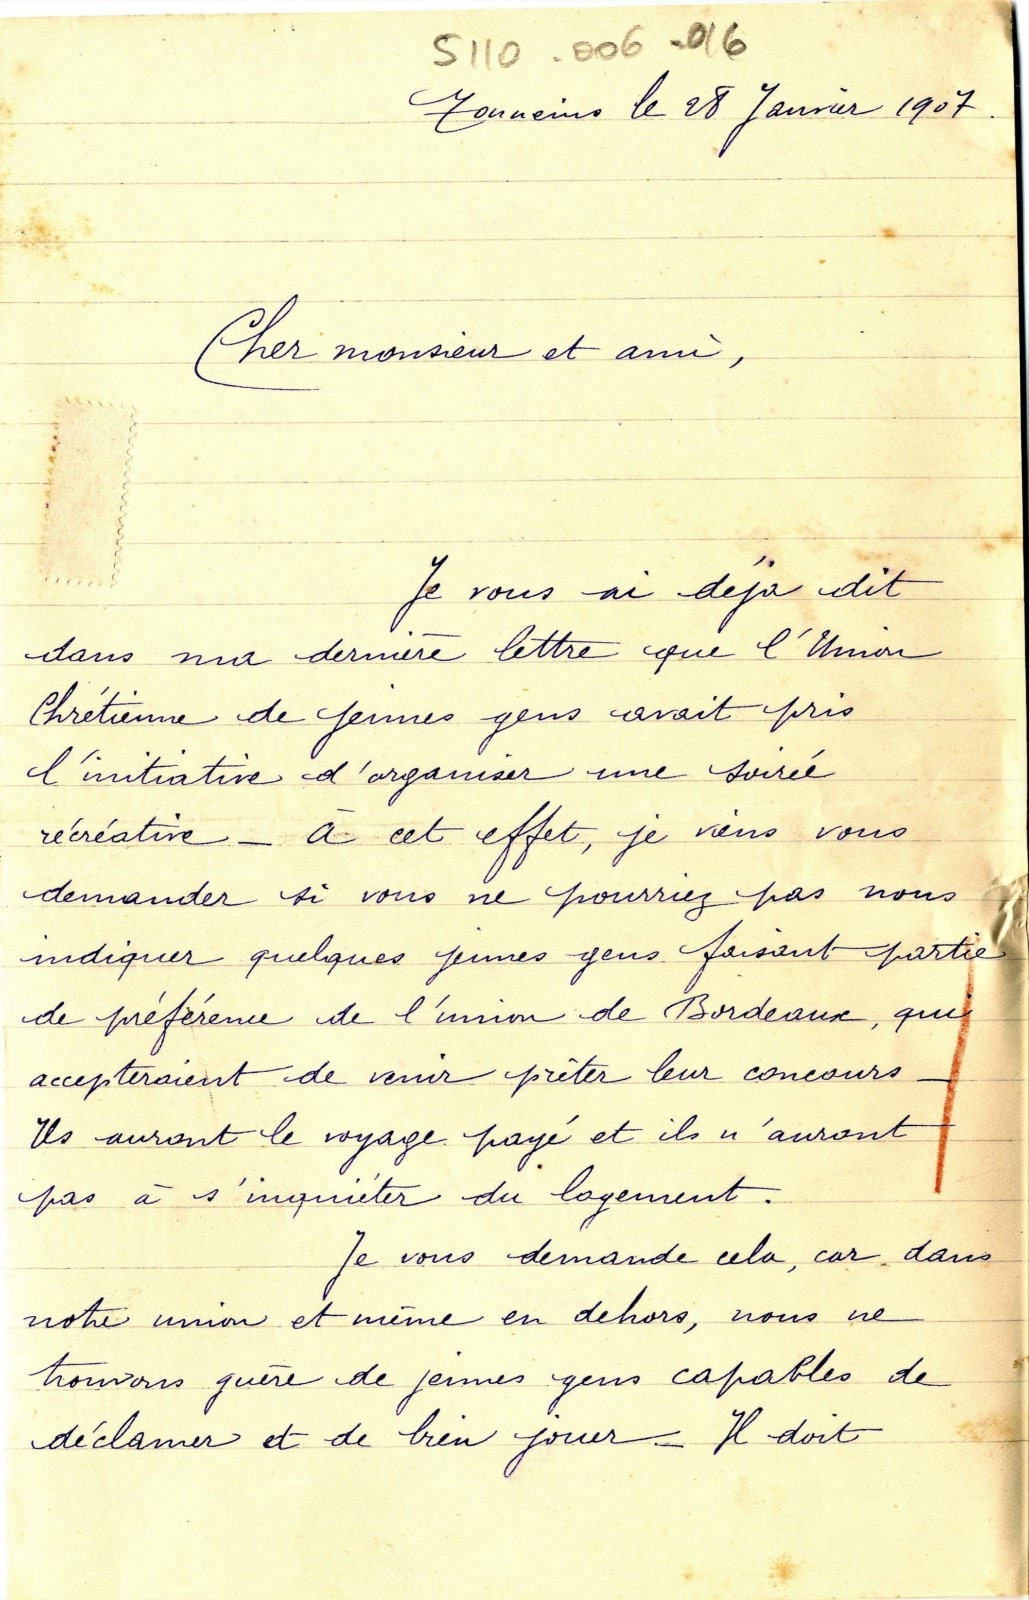 5110.006.016
Tonneins le 28 Janvier 1907.
Cher monsieur et ami,
Je vous ai déjà dit
dans ma dernière lettre que l'Union
Chrétienne de jeunes gens avait pris
l'initiative d'organiser une soirée
récréative _ À cet effet, je viens vous
demander si vous ne pourriez pas nous
indiquer quelques jeunes gens faisant partie
de préférence de l'union de Bordeaux, qui
accepteraient de venir prêter leur concours _
Ils auront le voyage payé et ils n'auront
pas à s'inquiéter du logement.
Je vous demande cela, car dans
notre union et même en dehors, nous ne
trouvons guère de jeunes gens capables de
déclamer et de bien jouer _ Il doit